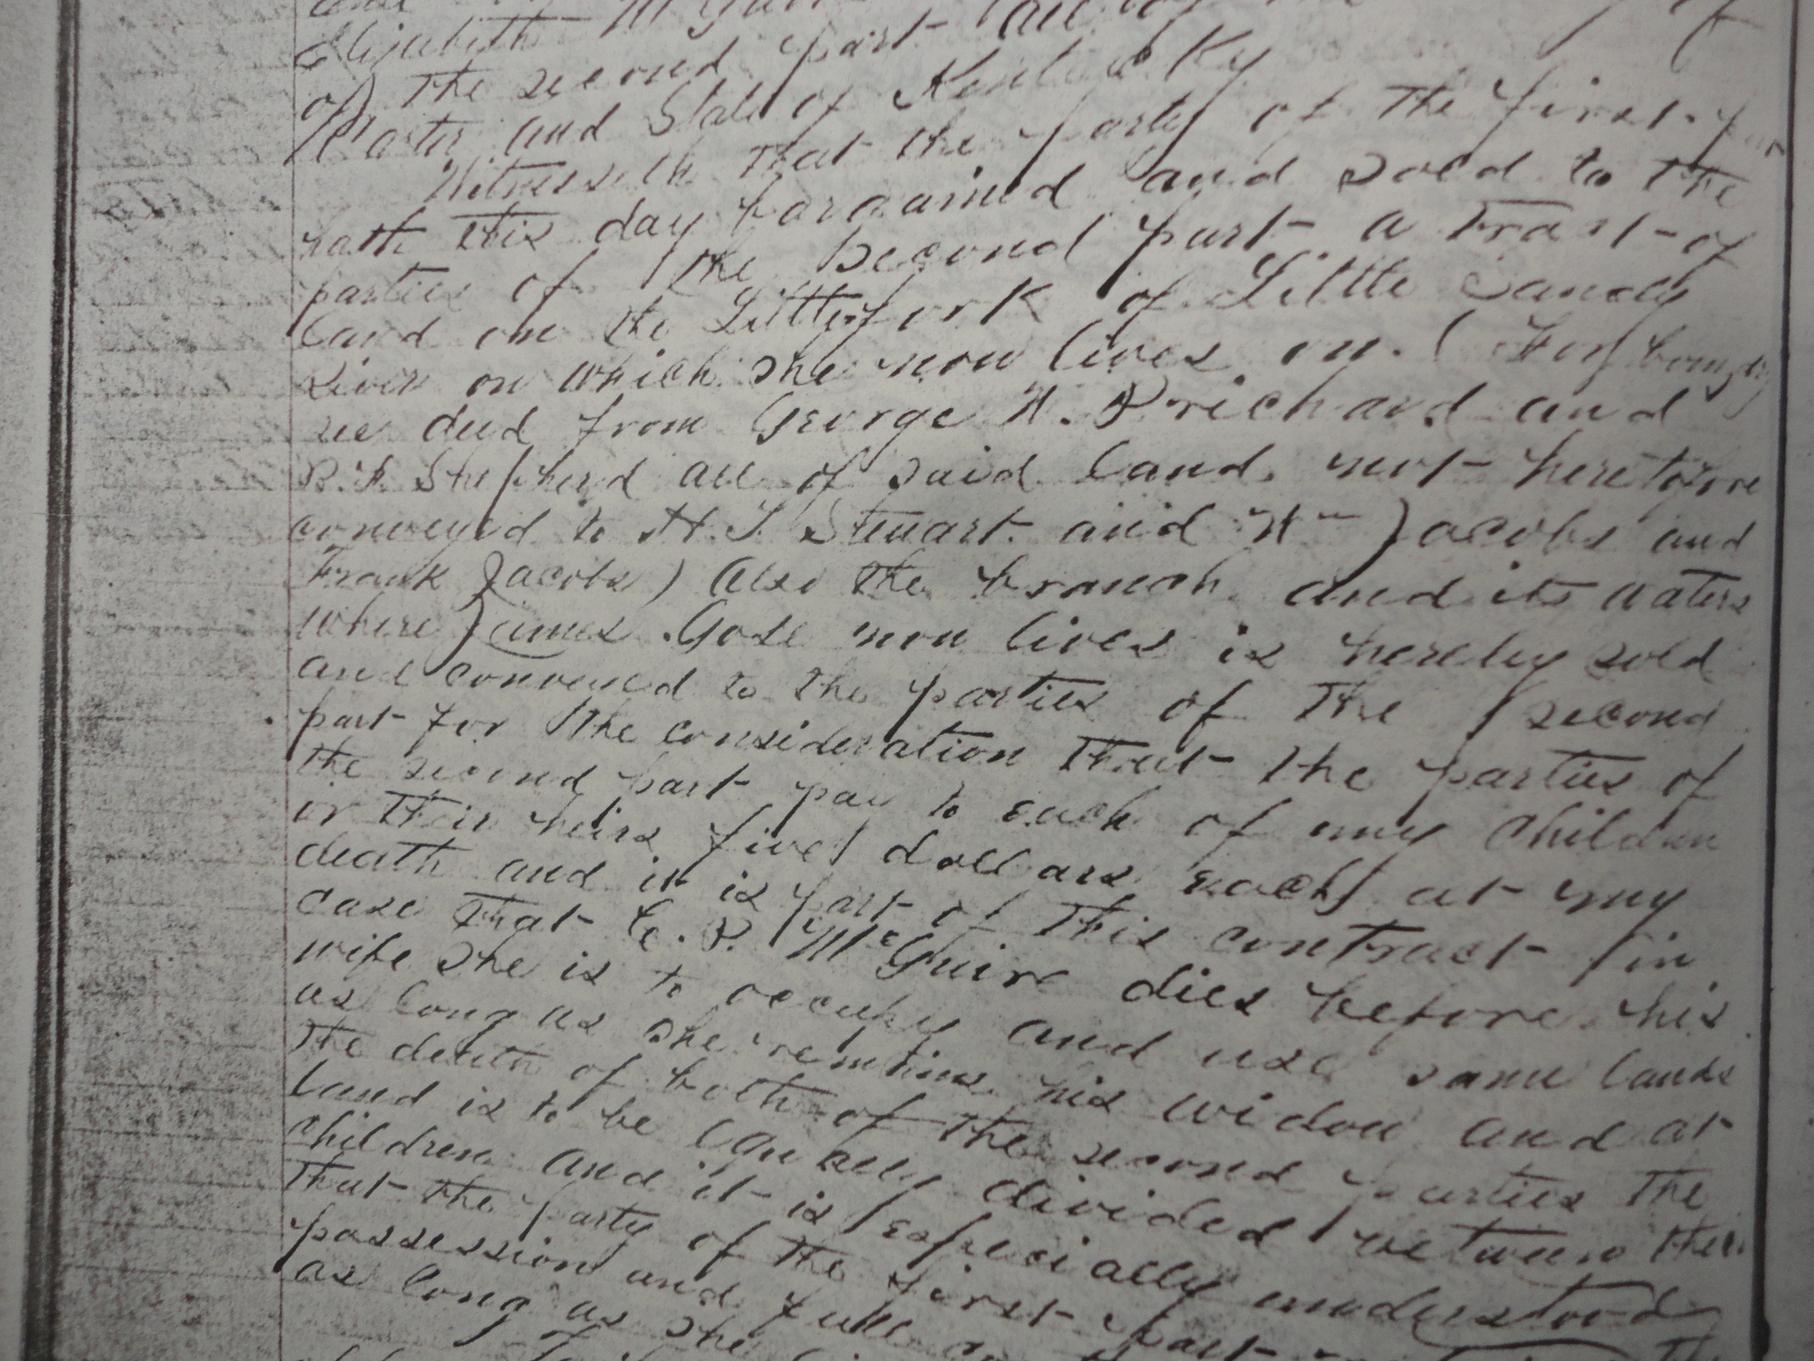 Elizabeth McGuire all
of the second part
Carter and State of Kentucky
Witnesseth that the party of the first part
hath this day bargained and sold to the
parties of the Second part a tract of
land on the Little fork of Little Sandy
River on which she now lives on. (For
see deed from George W. Prichard and
Shepherd all of said land not heretofore
conveyed to H. S. Stewart and Wm Jacobs and
Frank Jacobs) Also the branch and its waters
where James Gose now lives is hereby sold
and conveyed to the parties of the second
part for the consideration that the parties of
the second part pay to each of my children
or their heirs five dollars each at my
death and it is part of this contract in
case that C. P. McGuire dies before his
wife she is to occupy and use same lands
as long as she remains his widow and at
the death of both of the second parties the
land is to be equally divided between their
children and it is especially understood
that the party of the first part
possession and full
as long as she